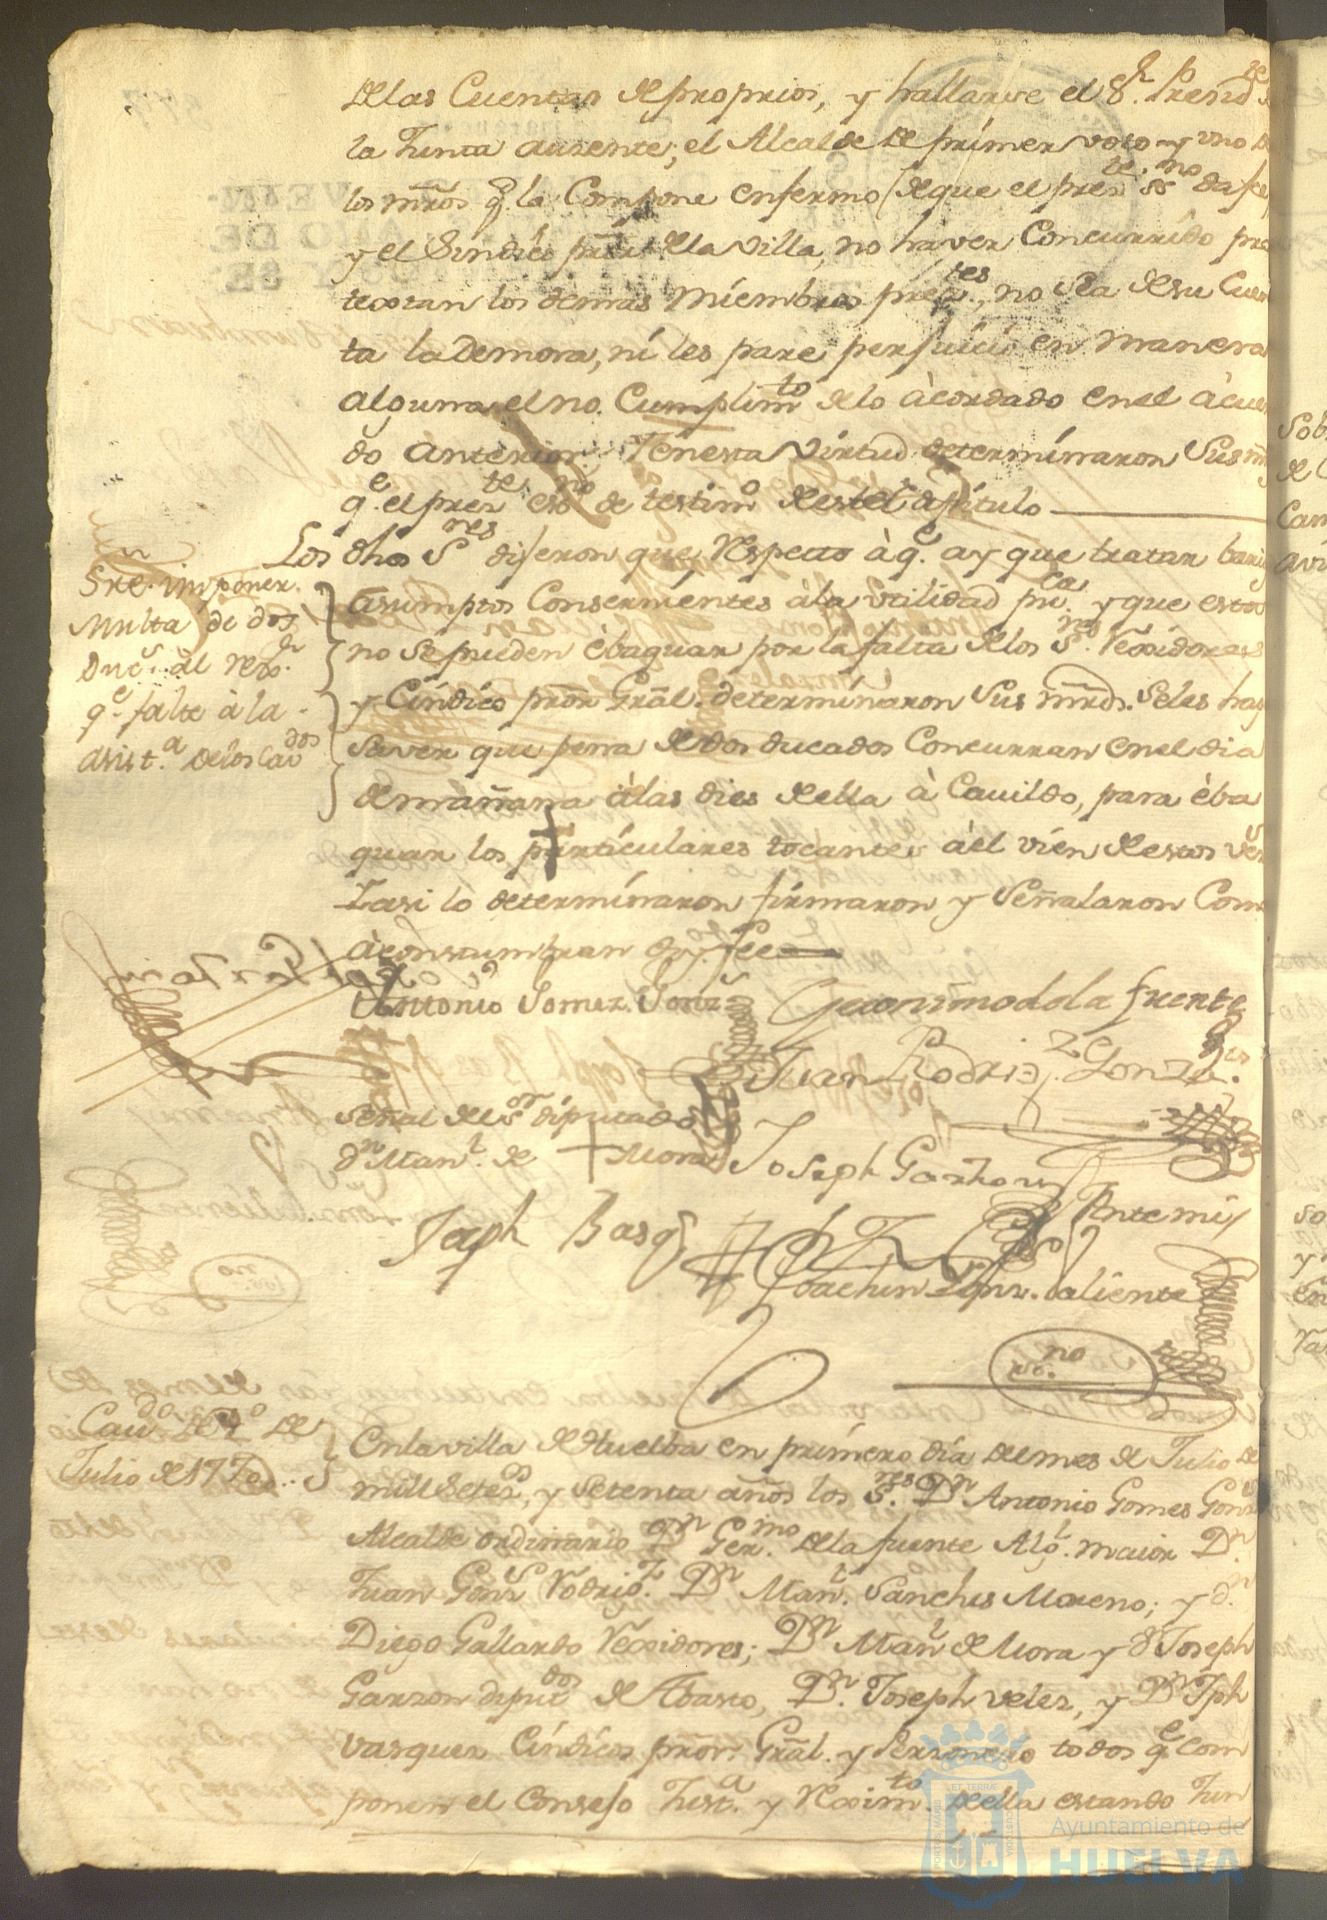 delas Cuentas de proprios, y hallarse el Sr. Presidte de
la Junta ausente, el Alcalde de primer voto y uno de
los mros q. la Compone enfermo (de que el preste. ssno da fee
y el Síndico prôr dela villa, no haver Concurrido pro
textan los demas Miembros preztes, no sea desu Cuen
ta la Demora, ni les pare perjuicio en manera
alguna el no Cumplimto delo àcordado enel àcuer
do anterior. Yenesta virtud determinaron Susmrds
qe. el preste esno de testimo deeste Capitulo
Los dhos Sres dijeron que Respecto à qe ay que tratar barios
Sre. imponer.
Multa de dos
Ducs. al rexdr.
qe. falte à la
asista. delos Cavdos
àsumptos Conserníentes àla utilidad puca. y que estos
no sepueden èbaquar por la falta delos Sres. Rexidores
y Cíndico prôr Grãl. determinaron Sus mrds. Seles haga
saver que pena de dos ducados Concurran enel dia
demañana àlas dies della à Cavildo, para èba
quar los partículares tocantes àel vien destos vesos
Yasi lo determinaron firmaron y Señalaron Como
àconstumbran doy fee
Antonio Gomez Gonz
Geronimo dela fuente
Juan Rodrigz. Gonzales
Señal del Sor. diputado
dn Manl. de + Mora
Joseph Garzon
Joseph Basqz
Antemi
Joachin Lopz. Valiente
sno
Cavdo de 1o de
Julio de 1770
Enla villa de Huelba en primero día del mes de Julio de
mill Setesos, y setenta años los Sres. Dn Antonio Gomes Gonzs
Alcalde ordinario Dn Germo. dela fuente Algl. maior Dn.
Juan Gonzs Rodrigz. Dn Manl. Sanches Moreno; y dn.
Diego Gallardo Rexidores; Dn Manl de Mora y dn Joseph
Garzon diputdos de Abasto, Dn. Joseph velez, y Dn Jph
vasquez Cíndicos prôn Grãl. y Personero todos qe com
ponen el Consejo Justa. y Reximto. della estando Jun
Ayuntamiento de
HUELVA